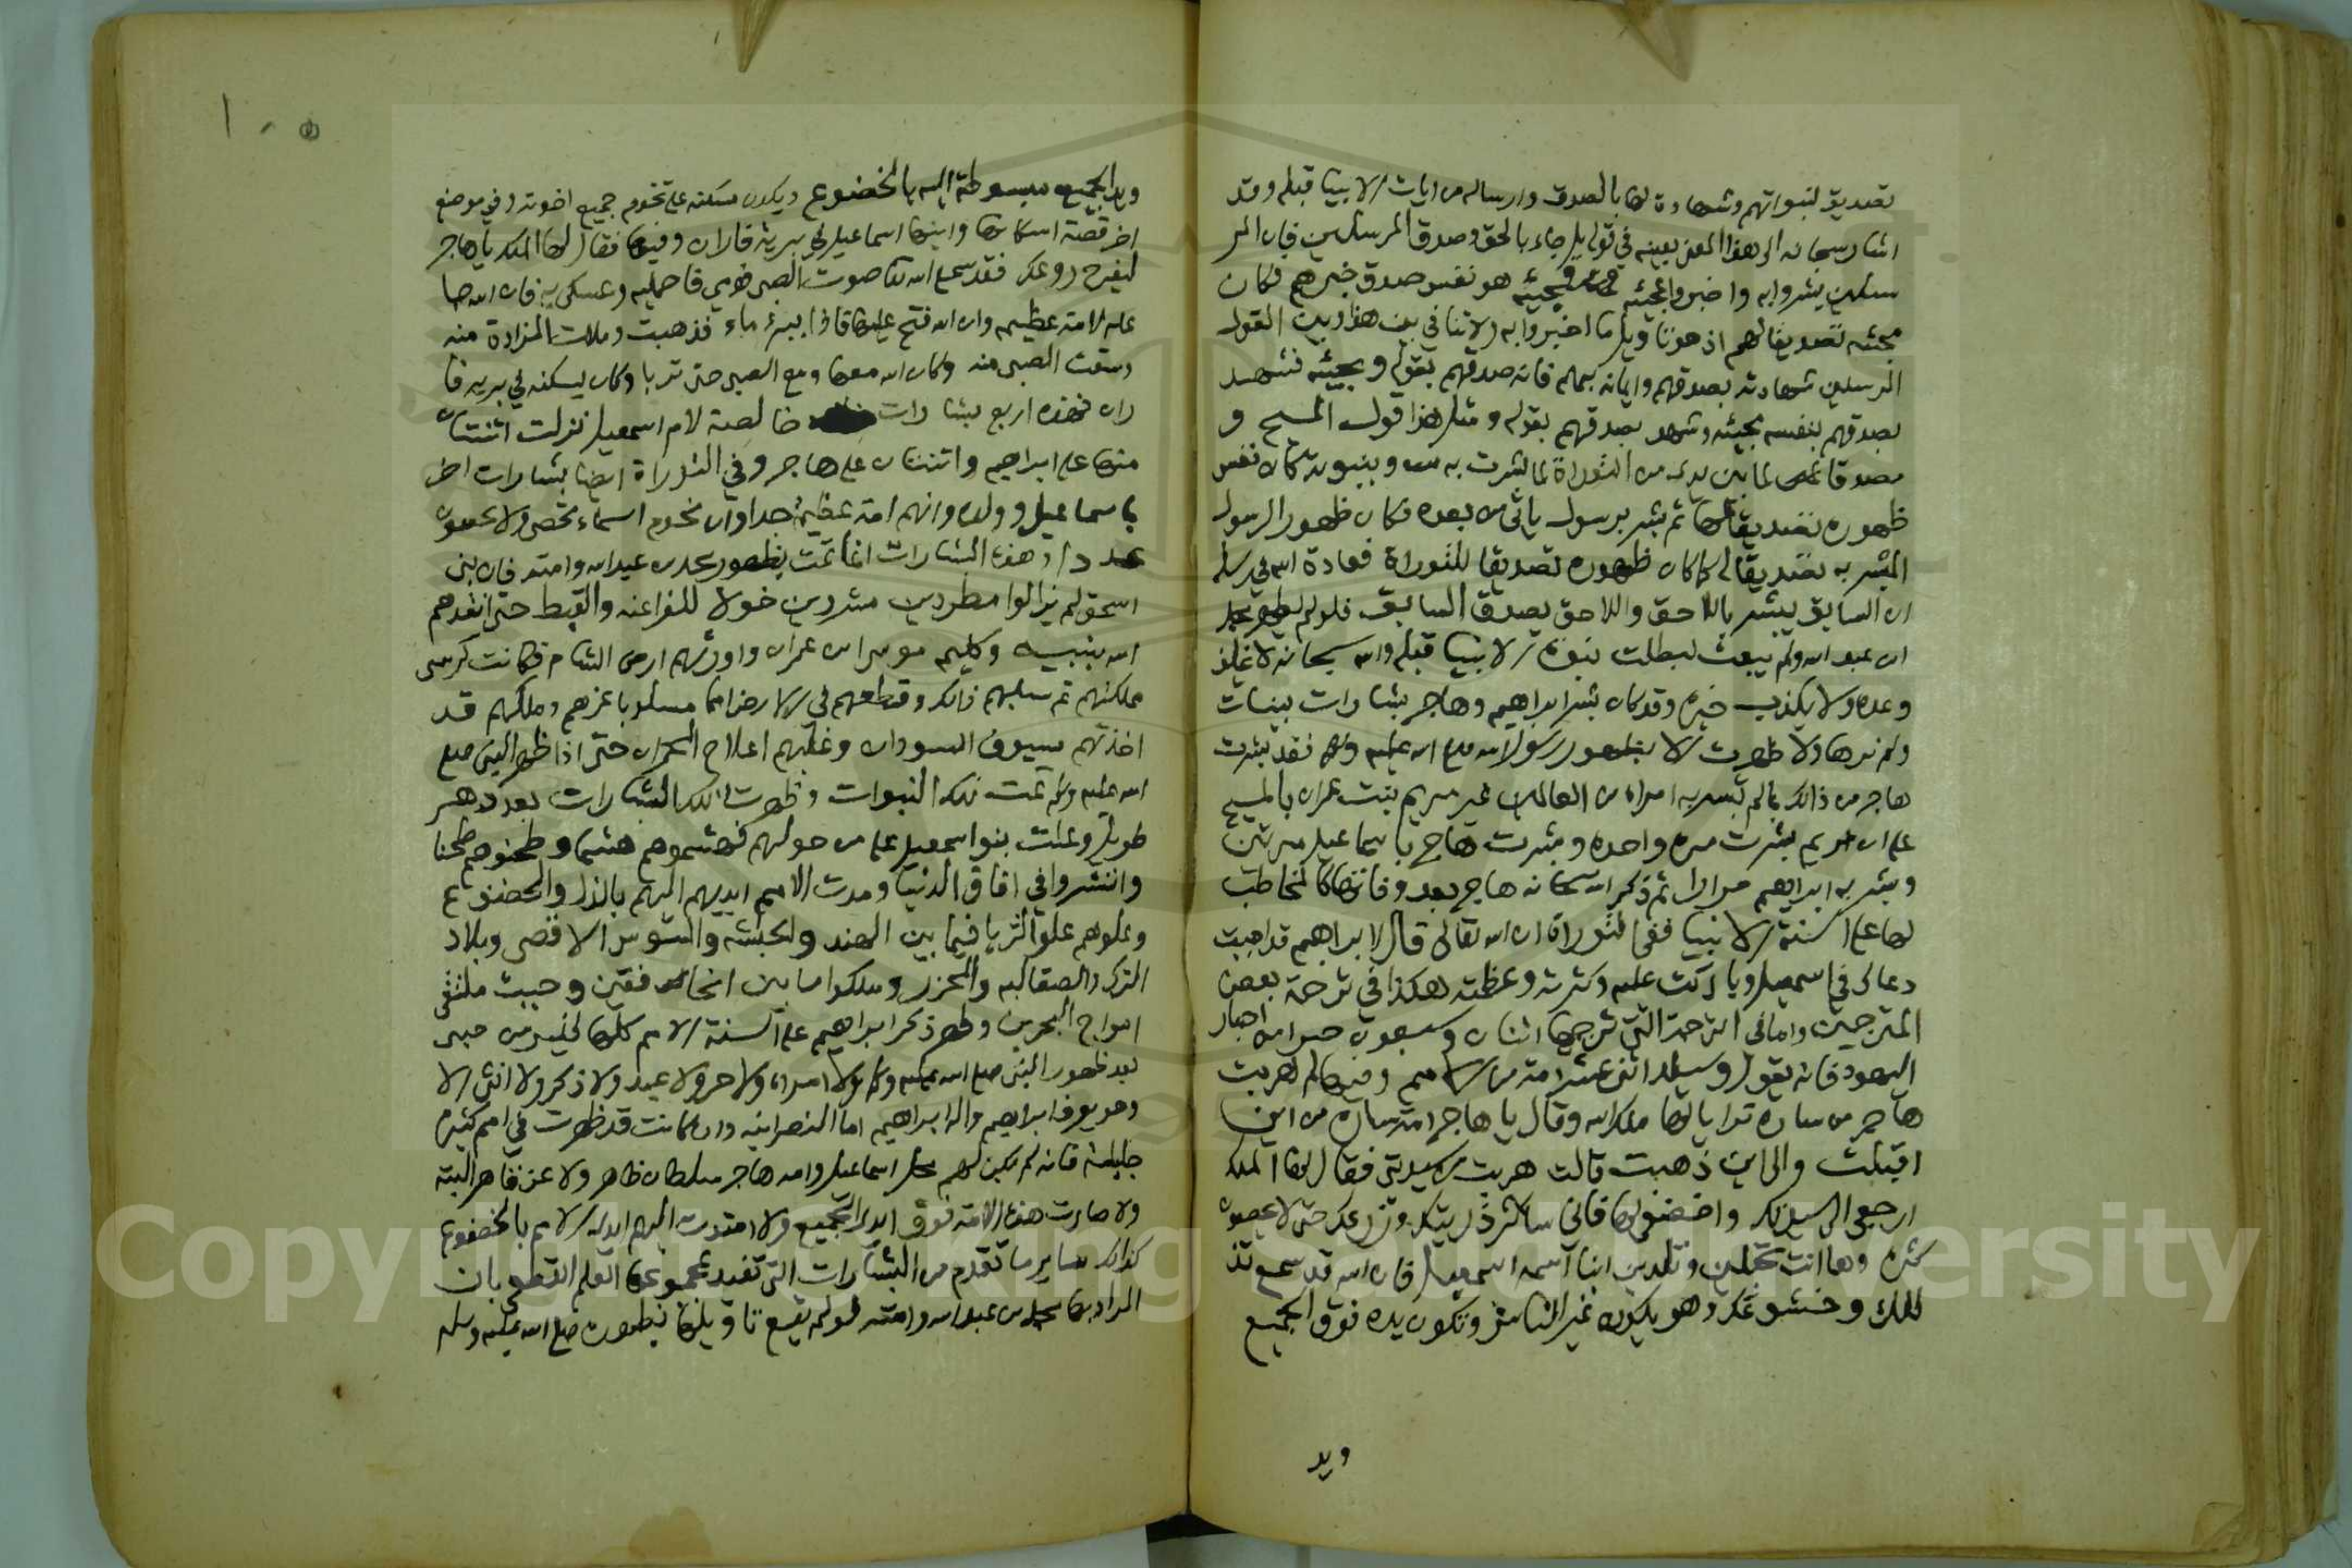 تصديق لنبواتهم وشهادة لها بالصدق وارساله من ايات الانبيا قبله وقد
اشار سبحانه الى هذا المعنى بعينه في قوله بل جاء بالحق وصدق المرسلين فان المر
سلين بشروا به واخبروا بمجيئه ومجيئه هو نفس صدق خبرهم فكان
مجيئه تصديقا لهم اذ هو تاويل ما اخبروا به ولا تنافي بين هذا وبين القول
المرسلين شهادته بصدقهم وايمانه بهم فانه صدقهم بقوله ومجيئه فشهد
بصدقهم بنفسه مجيئه وشهد بصدقهم بقوله ومثل هذا قول المسيح و
مصدقا لما بين يدي من التوراة لما بشرت به وبنبوته كان نفس
ظهوره تصديقا لها ثم بشر برسول ياتي من بعده فكان ظهور الرسول
المبشر به تصديقا له كما كان ظهوره تصديقا للتوراة فعادة الله في رسله
ان السابق يبشر باللاحق واللاحق يصدق السابق فلو لم يظهر محمد
ابن عبد الله ولم يبعث لبطلت نبوة الانبيا قبله والله سبحانه لا يخلف
وعده ولا يكذب خبره وقد كان بشر ابراهيم وهاجر بشارات بينات
ولم نرها ولا ظهرت الا بظهور رسول الله صلى الله عليه وسلم فقد بشرت
هاجر من ذالك بما لم تبشر به امراة من العالمين غير مريم بنت عمران بالمسيح
على ان مريم بشرت مره واحده وبشرت هاجر باسماعيل مرتين
وبشر به ابراهيم مرارا ثم ذكر الله سبحانه هاجر بعد وفاتها كالمخاطب
لها على السنة الانبيا ففي التوراة ان الله تعالى قال لابراهيم قد اجبت
دعاك في اسمعيل وباركت عليه وكثرته وعظمته هكذا في ترجمة بعض
المترجمين واما في الترجمة التي ترجمها اثنان وسبعون حبرا من احبار
اليهود فانه يقول وسيلد اثني عشر امة من الامم وفيها لما هربت
هاجر من ساره ترايا لها ملك الله وقال يا هاجر امة ساره من اين
اقبلت والى اين ذهبت قالت هربت من سيدتي فقال لها الملك
ارجعي الى سيدتك واخضعي لها فاني ساكثر ذريتك وزرعك حتى لا يحصون
كثرة وها انت تحبلين وتلدين ابنا اسمه اسمعيل فان الله قد سمع تذ
للك وخشوعك وهو يكون عير الناس وتكون يده فوق الجميع
ويد
ويد الجميع مبسوطة اليه بالخضوع ويكون مسكنه على تخوم جميع اخوته وفي موضع
اخر قصة اسكانها وابنها اسماعيل في برية فاران وفيها فقال لها الملك يا هاجر
ليفرح روعك فقد سمع الله تعا صوت الصبي قومي فاحمليه وتمسكي به فان الله جا
عله لامة عظيمه وان الله فتح عليها فاذا ببئر ماء فذهبت وملات المزادة منه
وسقت الصبي منه وكان الله معها ومع الصبي حتى تربا وكان يسكنه في برية فا
ران فهذه اربع بشارات خالصة لام اسمعيل نزلت اثنتان
منها على ابراهيم واثنتان على هاجر وفي التوراة ايضا بشارات اخر
باسماعيل وولده وانهم امة عظيمة جدا وان نجوم السماء تحصى ولا يحصون
عددا وهذه البشارات انما تمت بظهور محمد بن عبد الله وامته فان بني
اسحق لم يزالوا مطرودين مشردين خولا للفراعنه والقبط حتى انقذهم
الله بنبيه وكليمه موسى ابن عمران واورثهم ارض الشام فكانت كرسي
مملكتهم ثم سلبهم ذالك وقطعهم في الارض امما مسلوبا عزهم وملكهم قد
اخذتهم سيوف السودان وغلبهم اعلاج الحمران حتى اذا ظهر النبي صلى
الله عليه وسلم تمت تلك النبوات وظهرت تلك البشارات بعد دهر
طويل وعلت بنو اسمعيل على من حولهم فهشموهم هشيما وطحنوهم طحنا
وانتشروا في افاق الدنيا ومدت الامم ايديهم اليهم بالذل والخضوع
وعلوهم علو الثريا فيما بين الهند والحبشه والسوس الاقصى وبلاد
الترك والصقالبه والخزر وملكوا ما بين الخافقين وحيث ملتقى
امواج البحرين وظهر ذكر ابراهيم على السنة الامم كلها فليس من صبي
بعد ظهور النبي صلى الله عليه وسلم ولا امراة ولا حر ولا عبد ولا ذكر ولا انثى الا
وهو يعرف ابراهيم وال ابراهيم اما النصرانيه وان كانت قد ظهرت في امم كثيرة
جليلة فانه لم يكن لهم محل اسماعيل وامه هاجر سلطان ظاهر ولا عز قاهر البتة
ولا صارت هذه الامة فوق ايدي الجميع ولا امتدت اليهم ايدي الامم بالخضوع
كذلك ساير ما تقدم من البشارات التي تفيد بمجموعها العلم القطعي بان
المراد بها محمد بن عبد الله وامته فلو لم يقع تاويلها بظهوره صلى الله عليه وسلم
Copyright © King Saud University